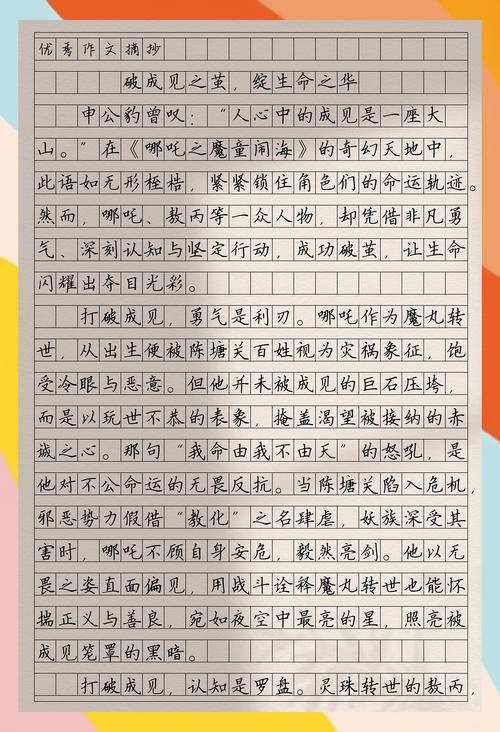 优秀作文摘抄
破成见之茧，绽生命之华
申公豹曾叹：“人心中的成见是一座大
山。”在《哪吒之魔童闹海》的奇幻天地中，
此语如无形桎梏，紧紧锁住角色们的命运轨迹。
然而，哪吒、敖丙等一众人物，却凭借非凡勇
气、深刻认知与坚定行动，成功破茧，让生命
闪耀出夺目光彩。
打破成见，勇气是利刃。哪吒作为魔丸转
世，从出生便被陈塘关百姓视为灾祸象征，饱
受冷眼与恶意。但他并未被成见的巨石压垮，
而是以玩世不恭的表象，掩盖渴望被接纳的赤
诚之心。那句“我命由我不由天”的怒吼，是
他对不公命运的无畏反抗。当陈塘关陷入危机，
邪恶势力假借“教化”之名肆虐，妖族深受其
害时，哪吒不顾自身安危，毅然亮剑。他以无
畏之姿直面偏见，用战斗诠释魔丸转世也能怀
揣正义与善良，宛如夜空中最亮的星，照亮被
成见笼罩的黑暗。
打破成见，认知是罗盘。灵珠转世的敖丙，